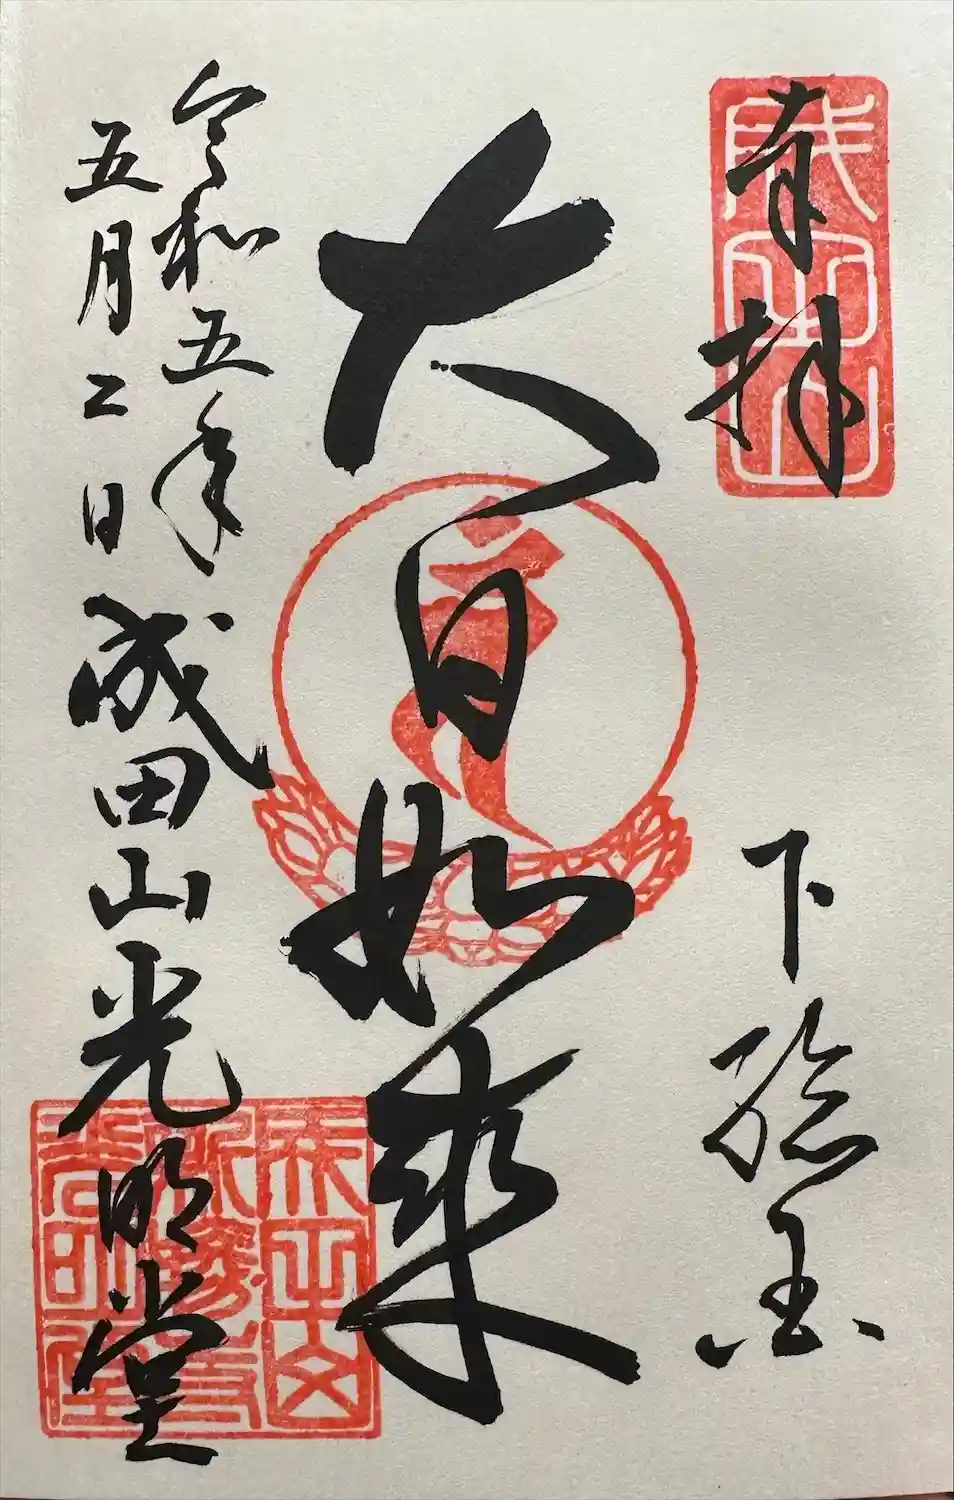 奉拝
下総國
大日如来
令和五年
五月二日
成田山光明堂
成田山